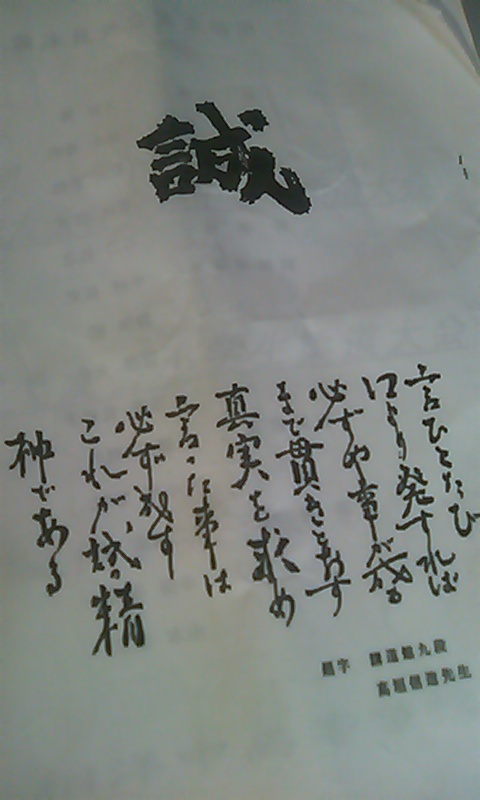 誠
言ひとたび
口より発すれば
必ずや事が成る
まで貫きとおす
真実を求め
言った事は
必ず成す
これが、誠の精
神である
題字 講道館九段
高垣信造先生